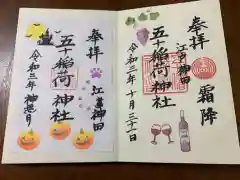 奉拝
江戸神田
五十稲荷神社
令和三年神無月
奉拝
江戸神田
霜降
五十稲荷神社
令和三年十月三十一日